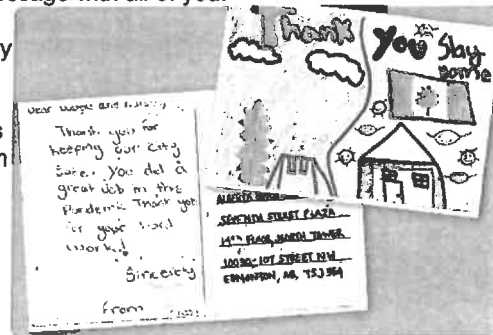 Thank
You Stay
home
Thank you for
keeping our city
Safe. You did a
great Job in the
Pandemic Thank you
for your hard
work!
Sincerely
From
ALBERTA
SEVENTH STREET PLAZA
14th FLOOR, NORTH TOWER
10030-107 STREET NW
EDMONTON, AB, T5J 3E4